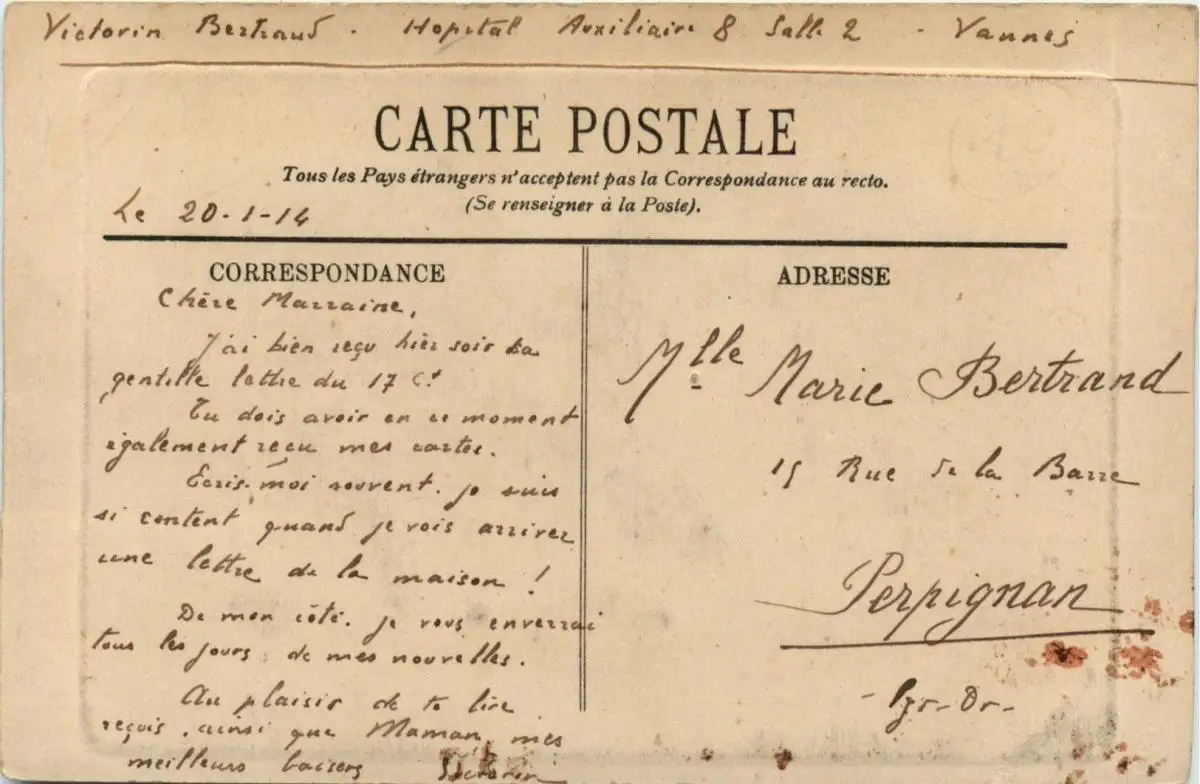 Victorin Bertrand. Hopital Auxiliaire 8 Salle 2 - Vannes
CARTE POSTALE
Tous les Pays étrangers n'acceptent pas la Correspondance au recto.
(Se renseigner à la Poste).
Le 20-1-14
CORRESPONDANCE
Chère Marraine,
J'ai bien reçu hier soir ta
gentille lettre du 17 ct
Tu dois avoir en ce moment
également reçu mes cartes.
Ecris-moi souvent. je suis
si content quand je vois arriver
une lettre de la maison !
De mon côté. je vous enverrai
tous les jours de mes nouvelles.
Au plaisir de te lire
reçois ainsi que Maman, mes
meilleurs baisers Victorin
ADRESSE
Mlle Marie Bertrand
15 Rue de la Barre
Perpignan
- Pyr-Or-